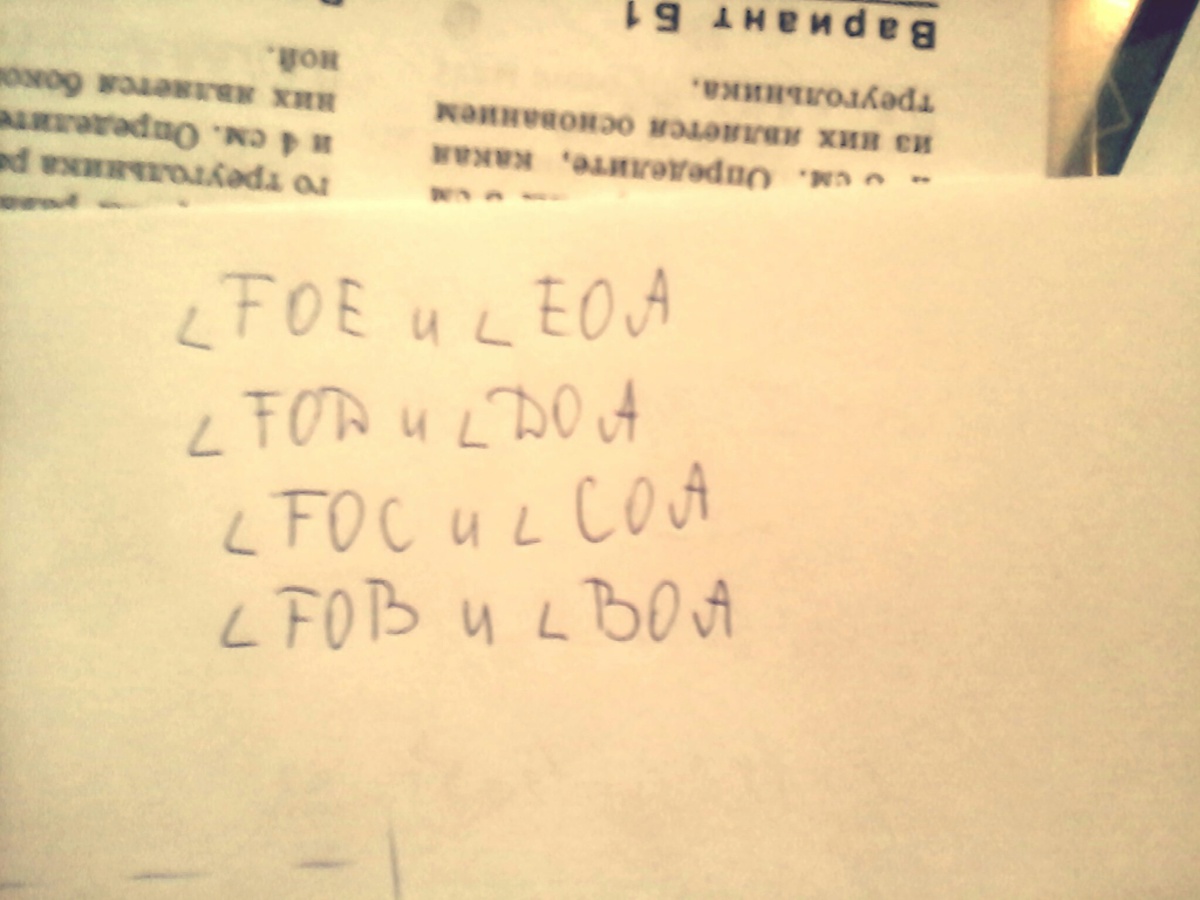 ∠FOE и ∠EOA
∠FOD и ∠DOA
∠FOC и ∠COA
∠FOB и ∠BOA
Вариант Б1
треугольника.
из них является основанием
см. Определите, какая
см
ной.
них является
и 4 см. Определите
го треугольника